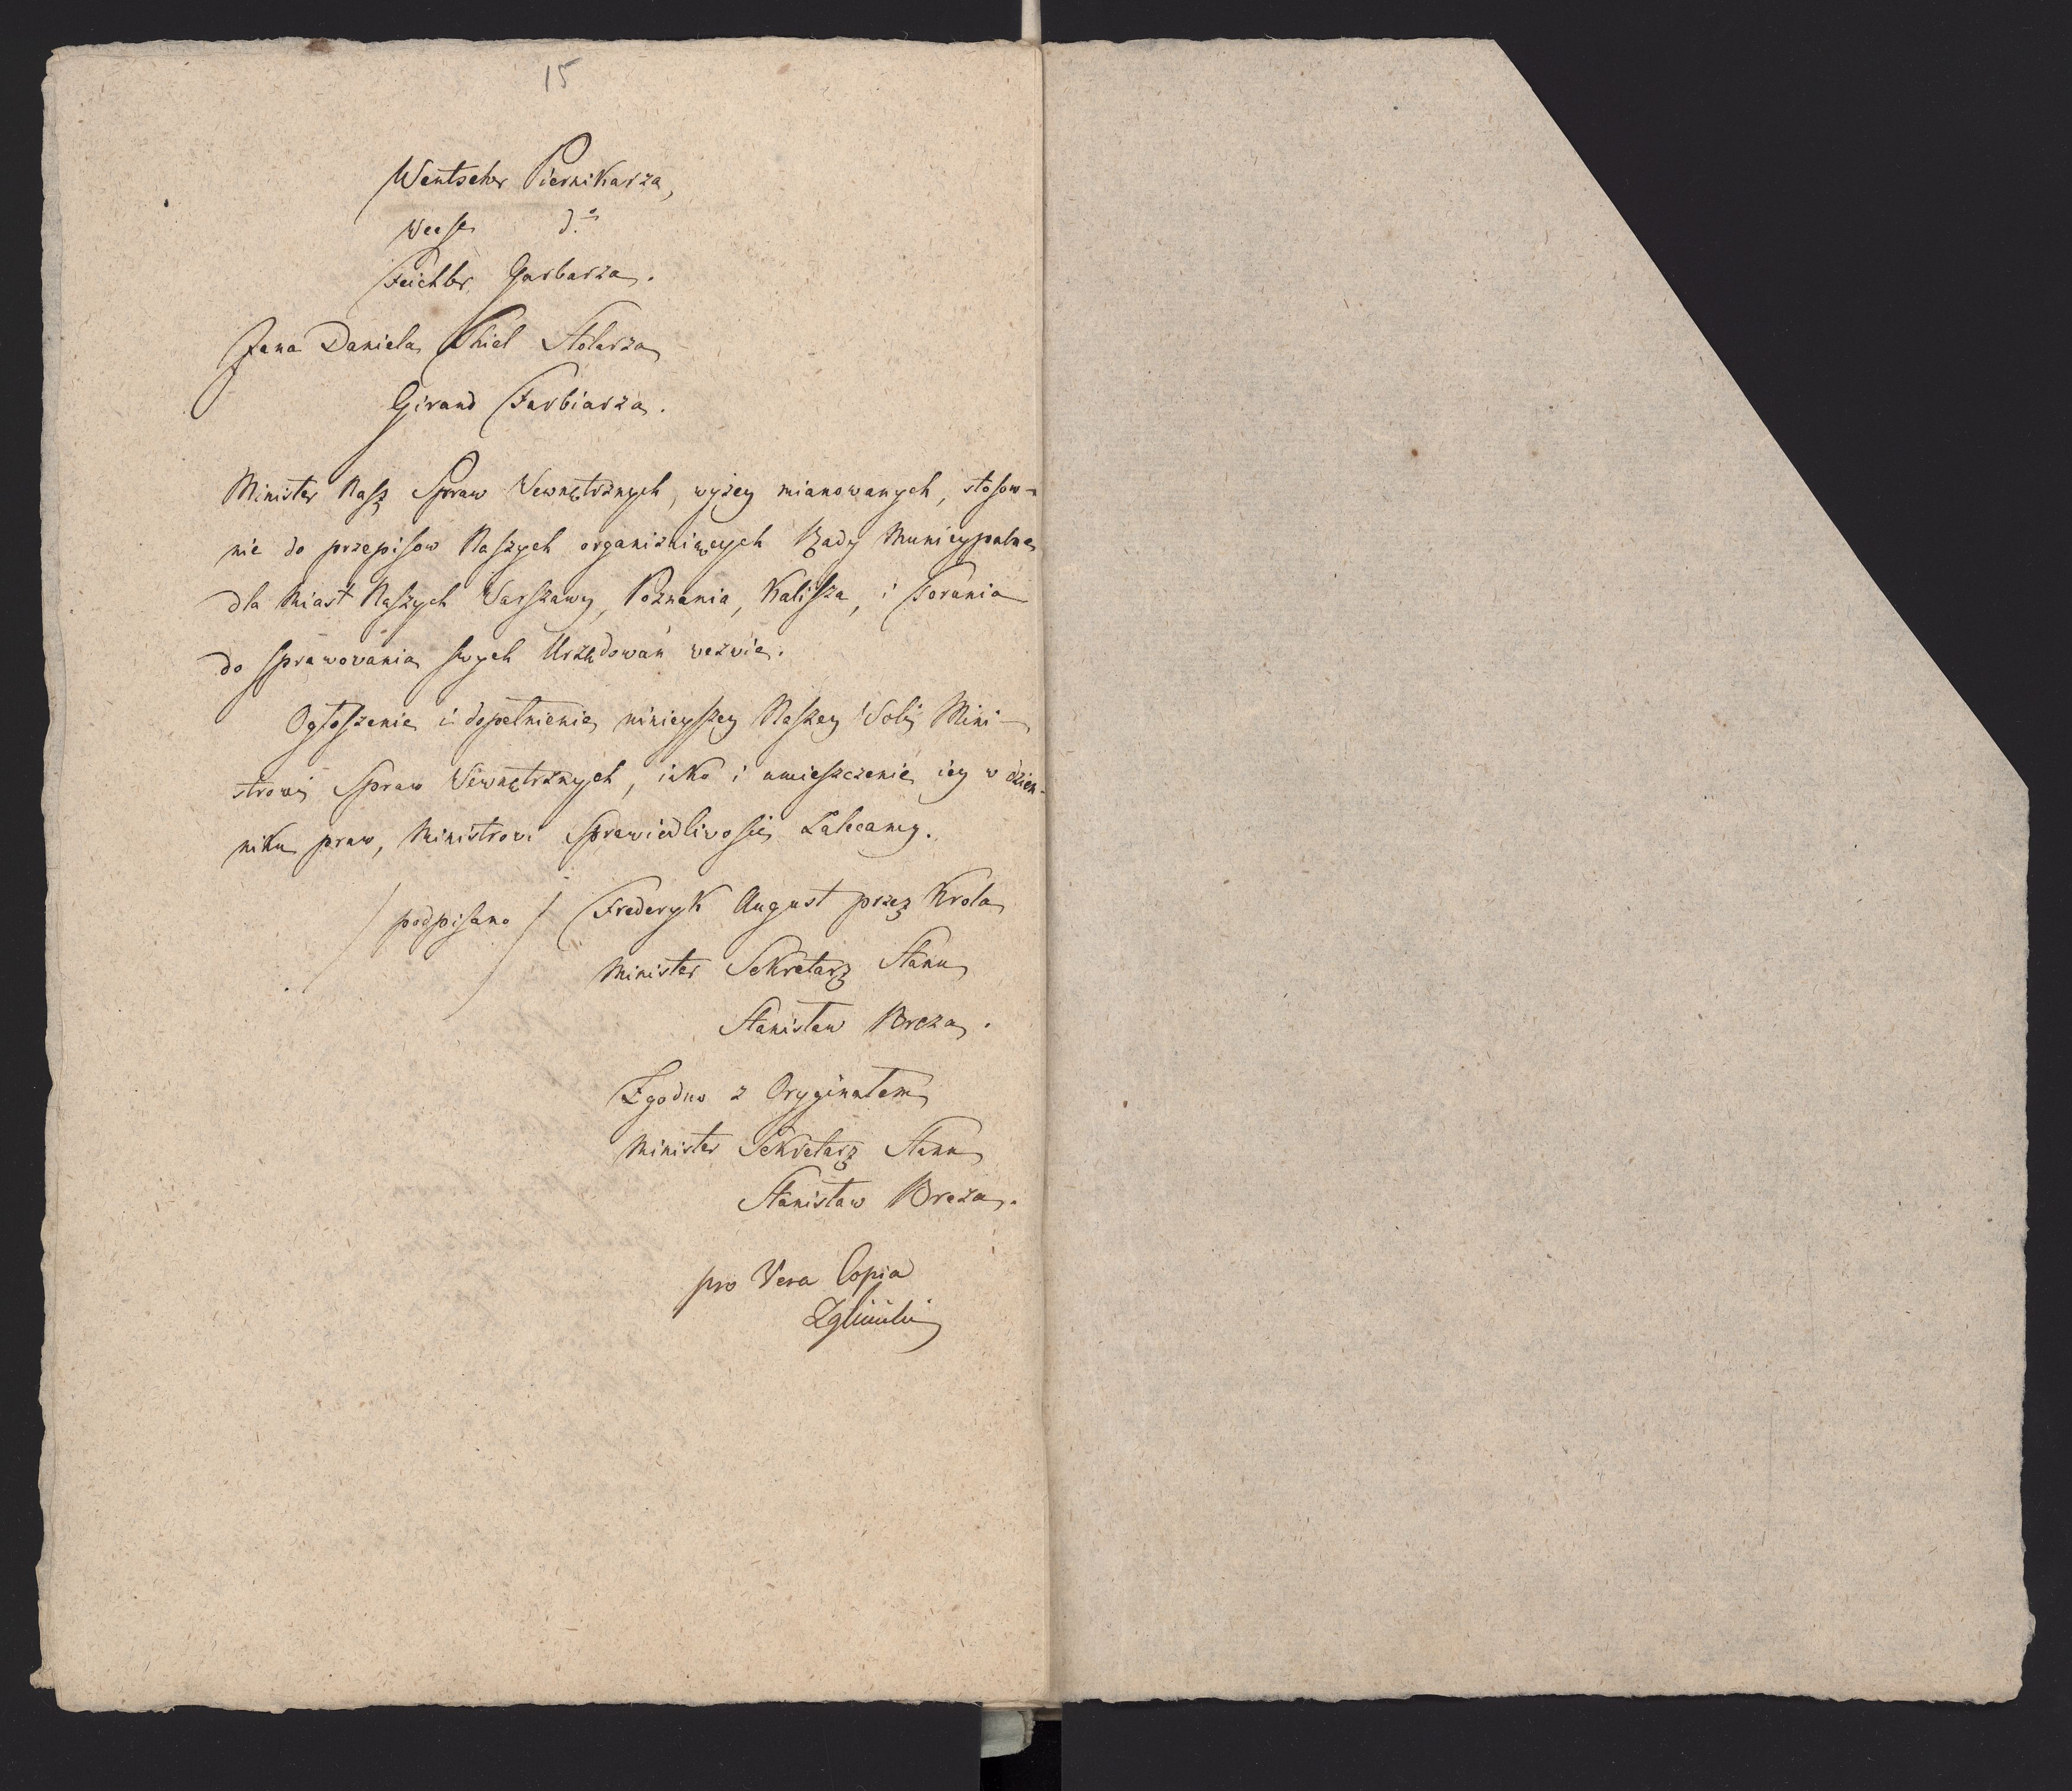 15
Wentscher Piernikarza,
Weese d.o
Feichter Garbarza.
Jana Daniela Thiel Stolarza
Girand Farbiarza.
Minister Nasz Spraw Wewnętrznych, wyżey mianowanych, stosow-
nie do przepisow Naszych organizuiących Rady Municypalne
dla Miast Naszych Warszawy, Poznania, Kalisza, i Torunia
do sprawowania swych Urzędowań wezwie.
Ogłoszenie i dopełnienie ninieyszey Naszey Woli Mini-
strowi Spraw Wewnętrznych, iako i umieszczenie iey w dzien-
niku praw, Ministrowi Sprawiedliwości Zalecamy.
/ podpisano / Frederyk August przez Krola
Minister Sekretarz Stanu
Stanisław Breza.
Zgodno z Oryginałem
Minister Sekretarz Stanu
Stanisław Breza.
pro Vera Copia